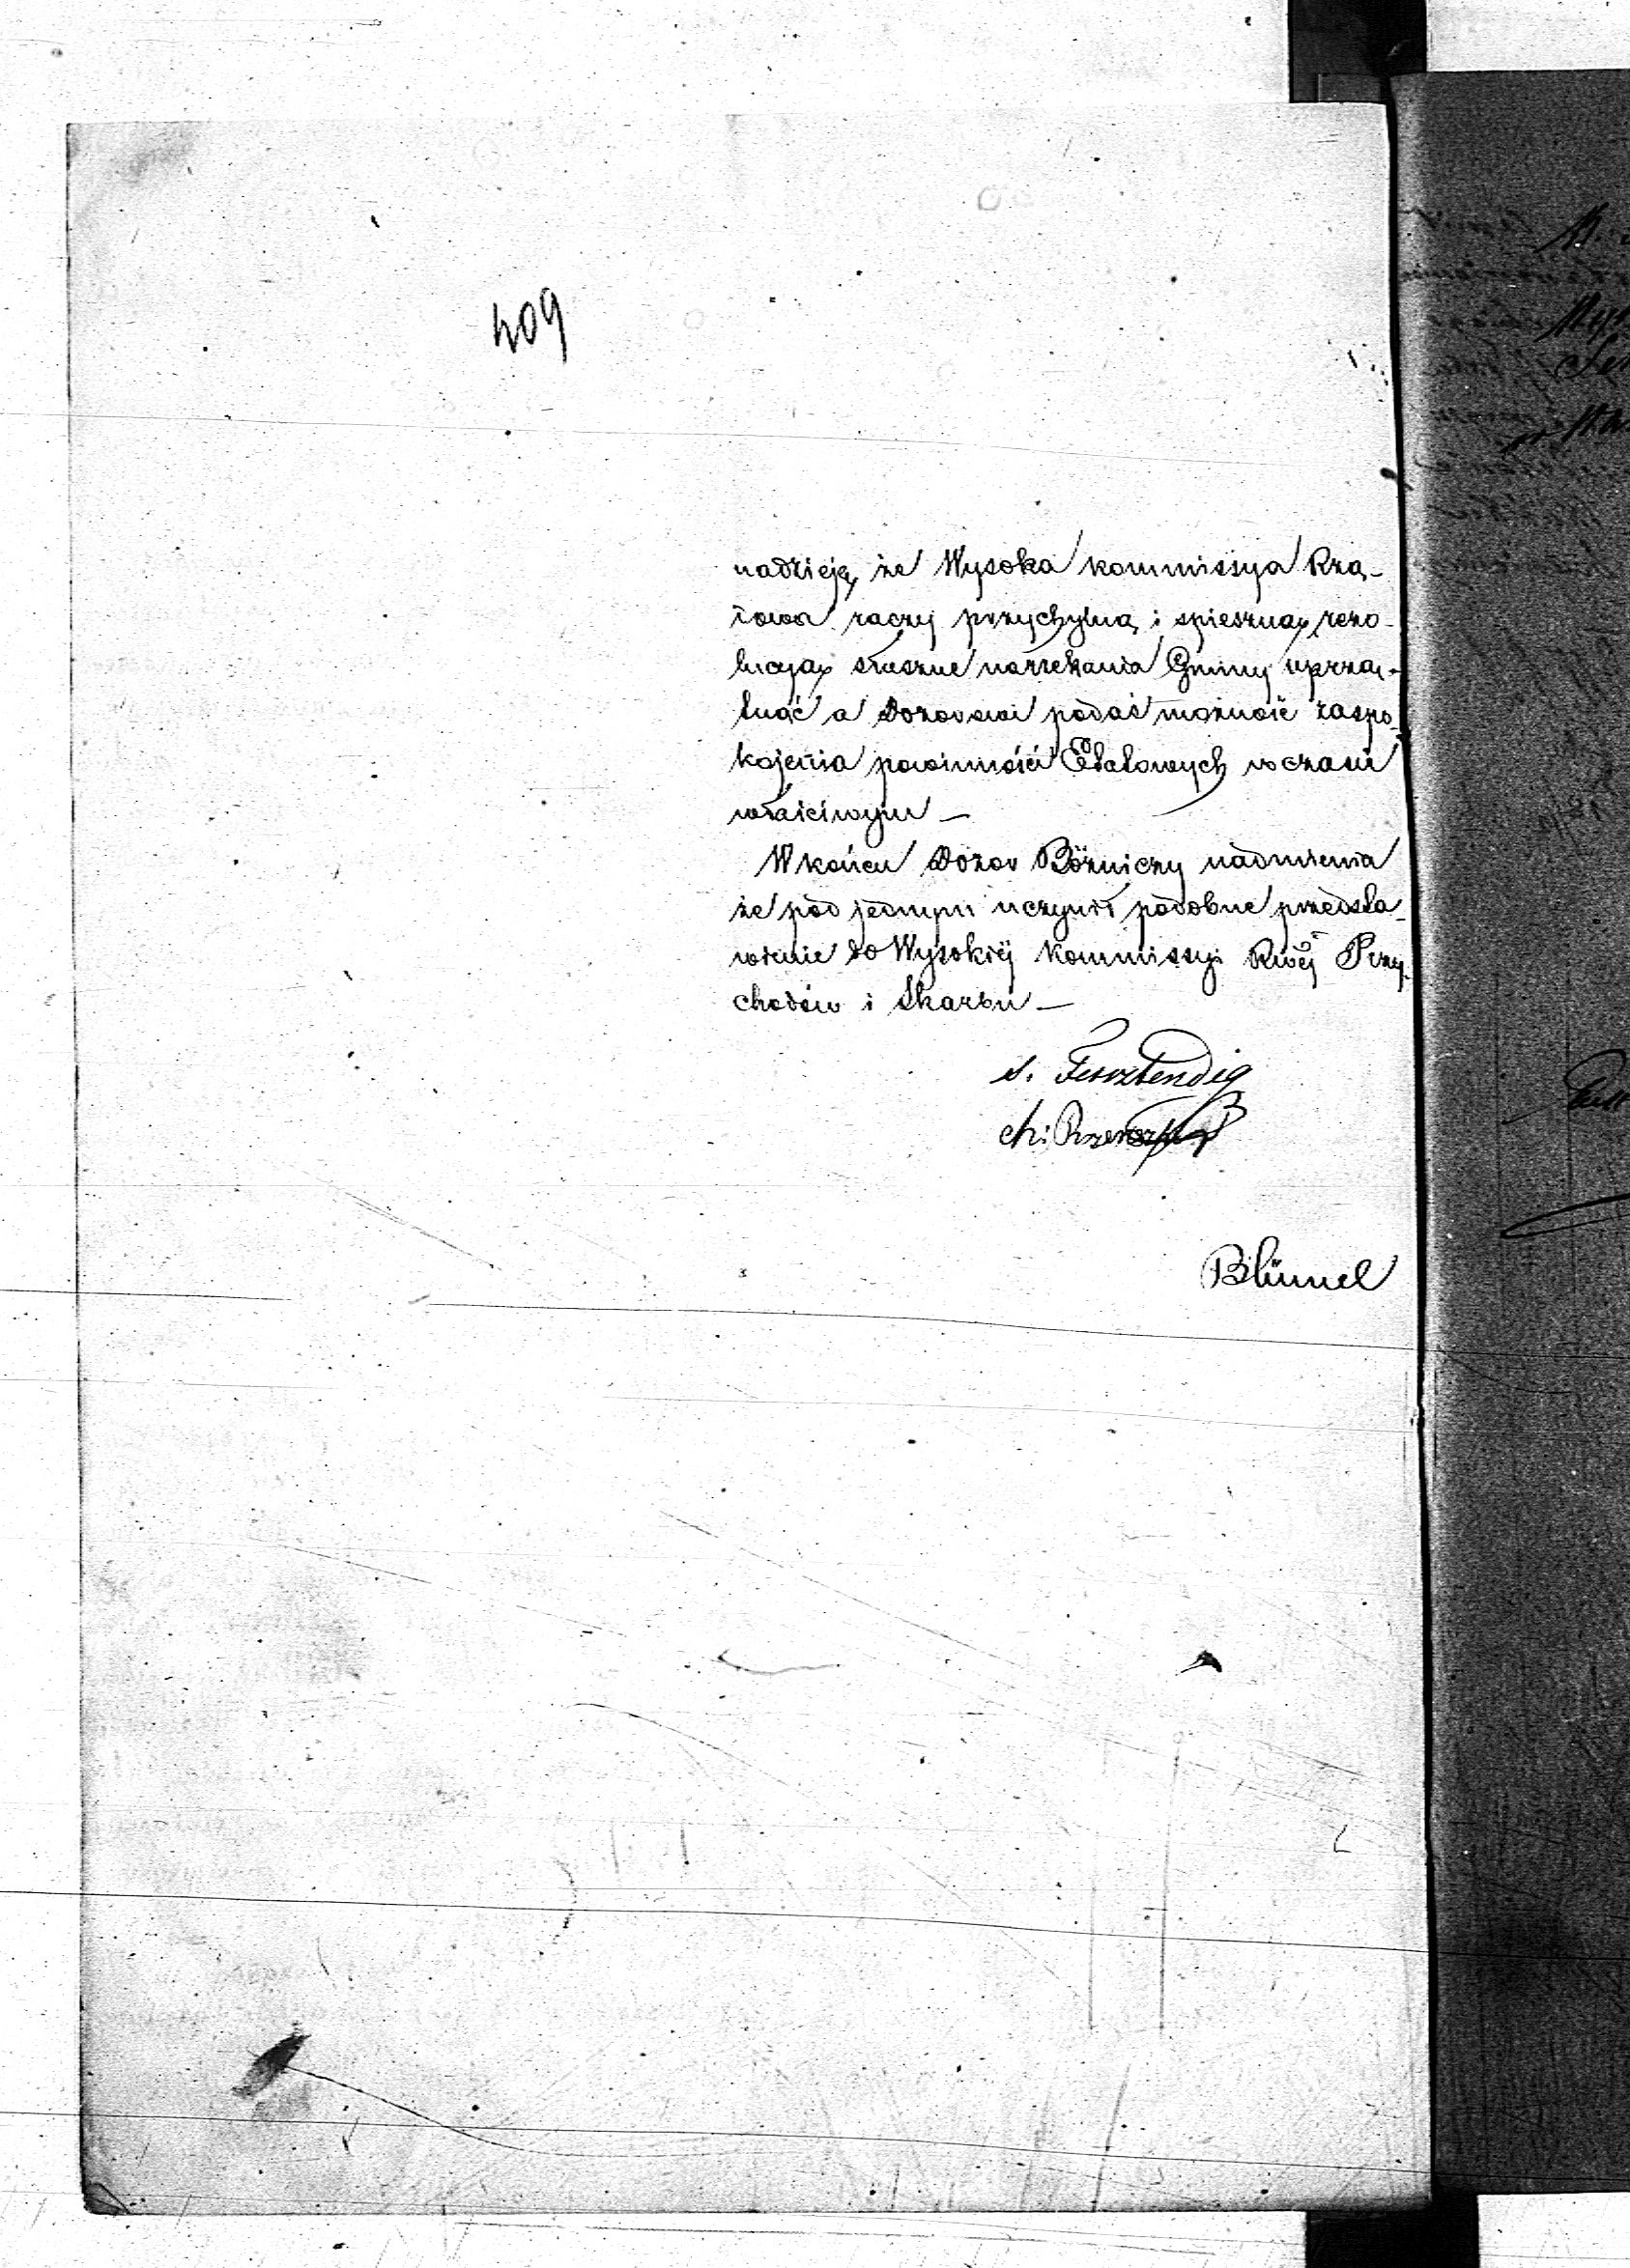 409
nadzieję, że Wysoka kommissya Rzą-
dowa raczy przychylną i spieszną rezo-
lucyą słuszne narzekania Gminy uprzą-
tnąć a Dozorowi podać możność zaspo-
kojenia powinności Etatowych w czasie
właściwym —
W końcu Dozor Bóżniczy nadmienia
że pod jednym uczynił podobne przedsta-
wienie do Wysokiéj Kommissyi Rwéj Przy-
chodów i Skarbu —
S. Fersztendig
Ch:
Blümel